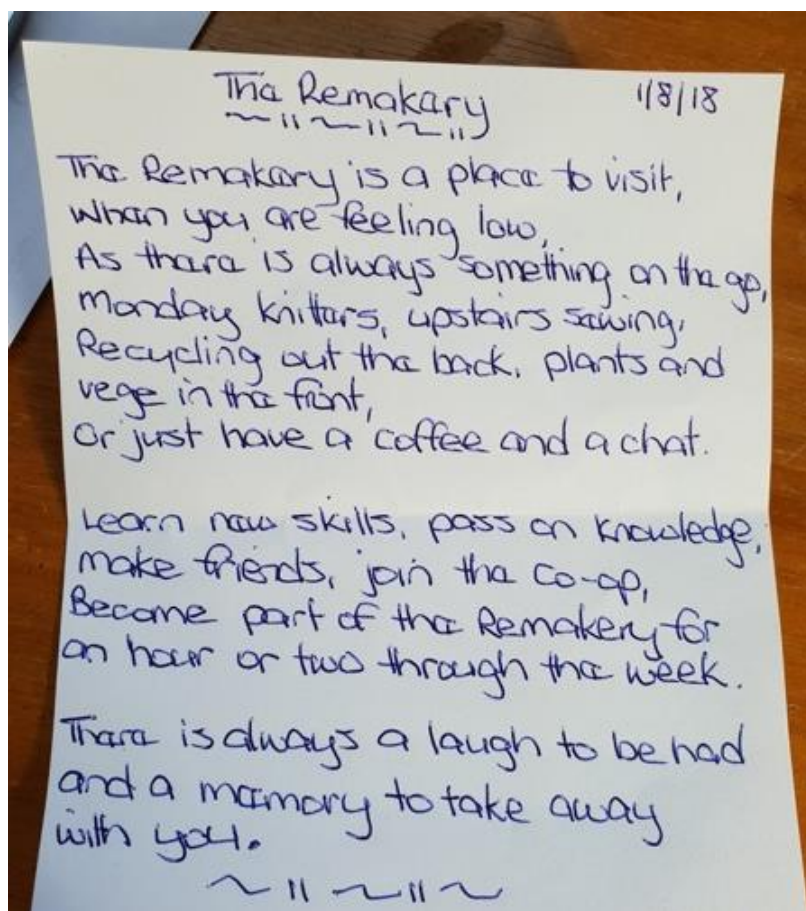 The Remakery 1/8/18
The Remakery is a place to visit,
When you are feeling low,
As there is always something on the go,
Monday knitters, upstairs sewing,
Recycling out the back, plants and
vege in the front,
Or just have a coffee and a chat.
Learn new skills, pass on knowledge,
make friends, join the Co-op,
Become part of the Remakery for
an hour or two through the week.
There is always a laugh to be had
and a memory to take away
with you.